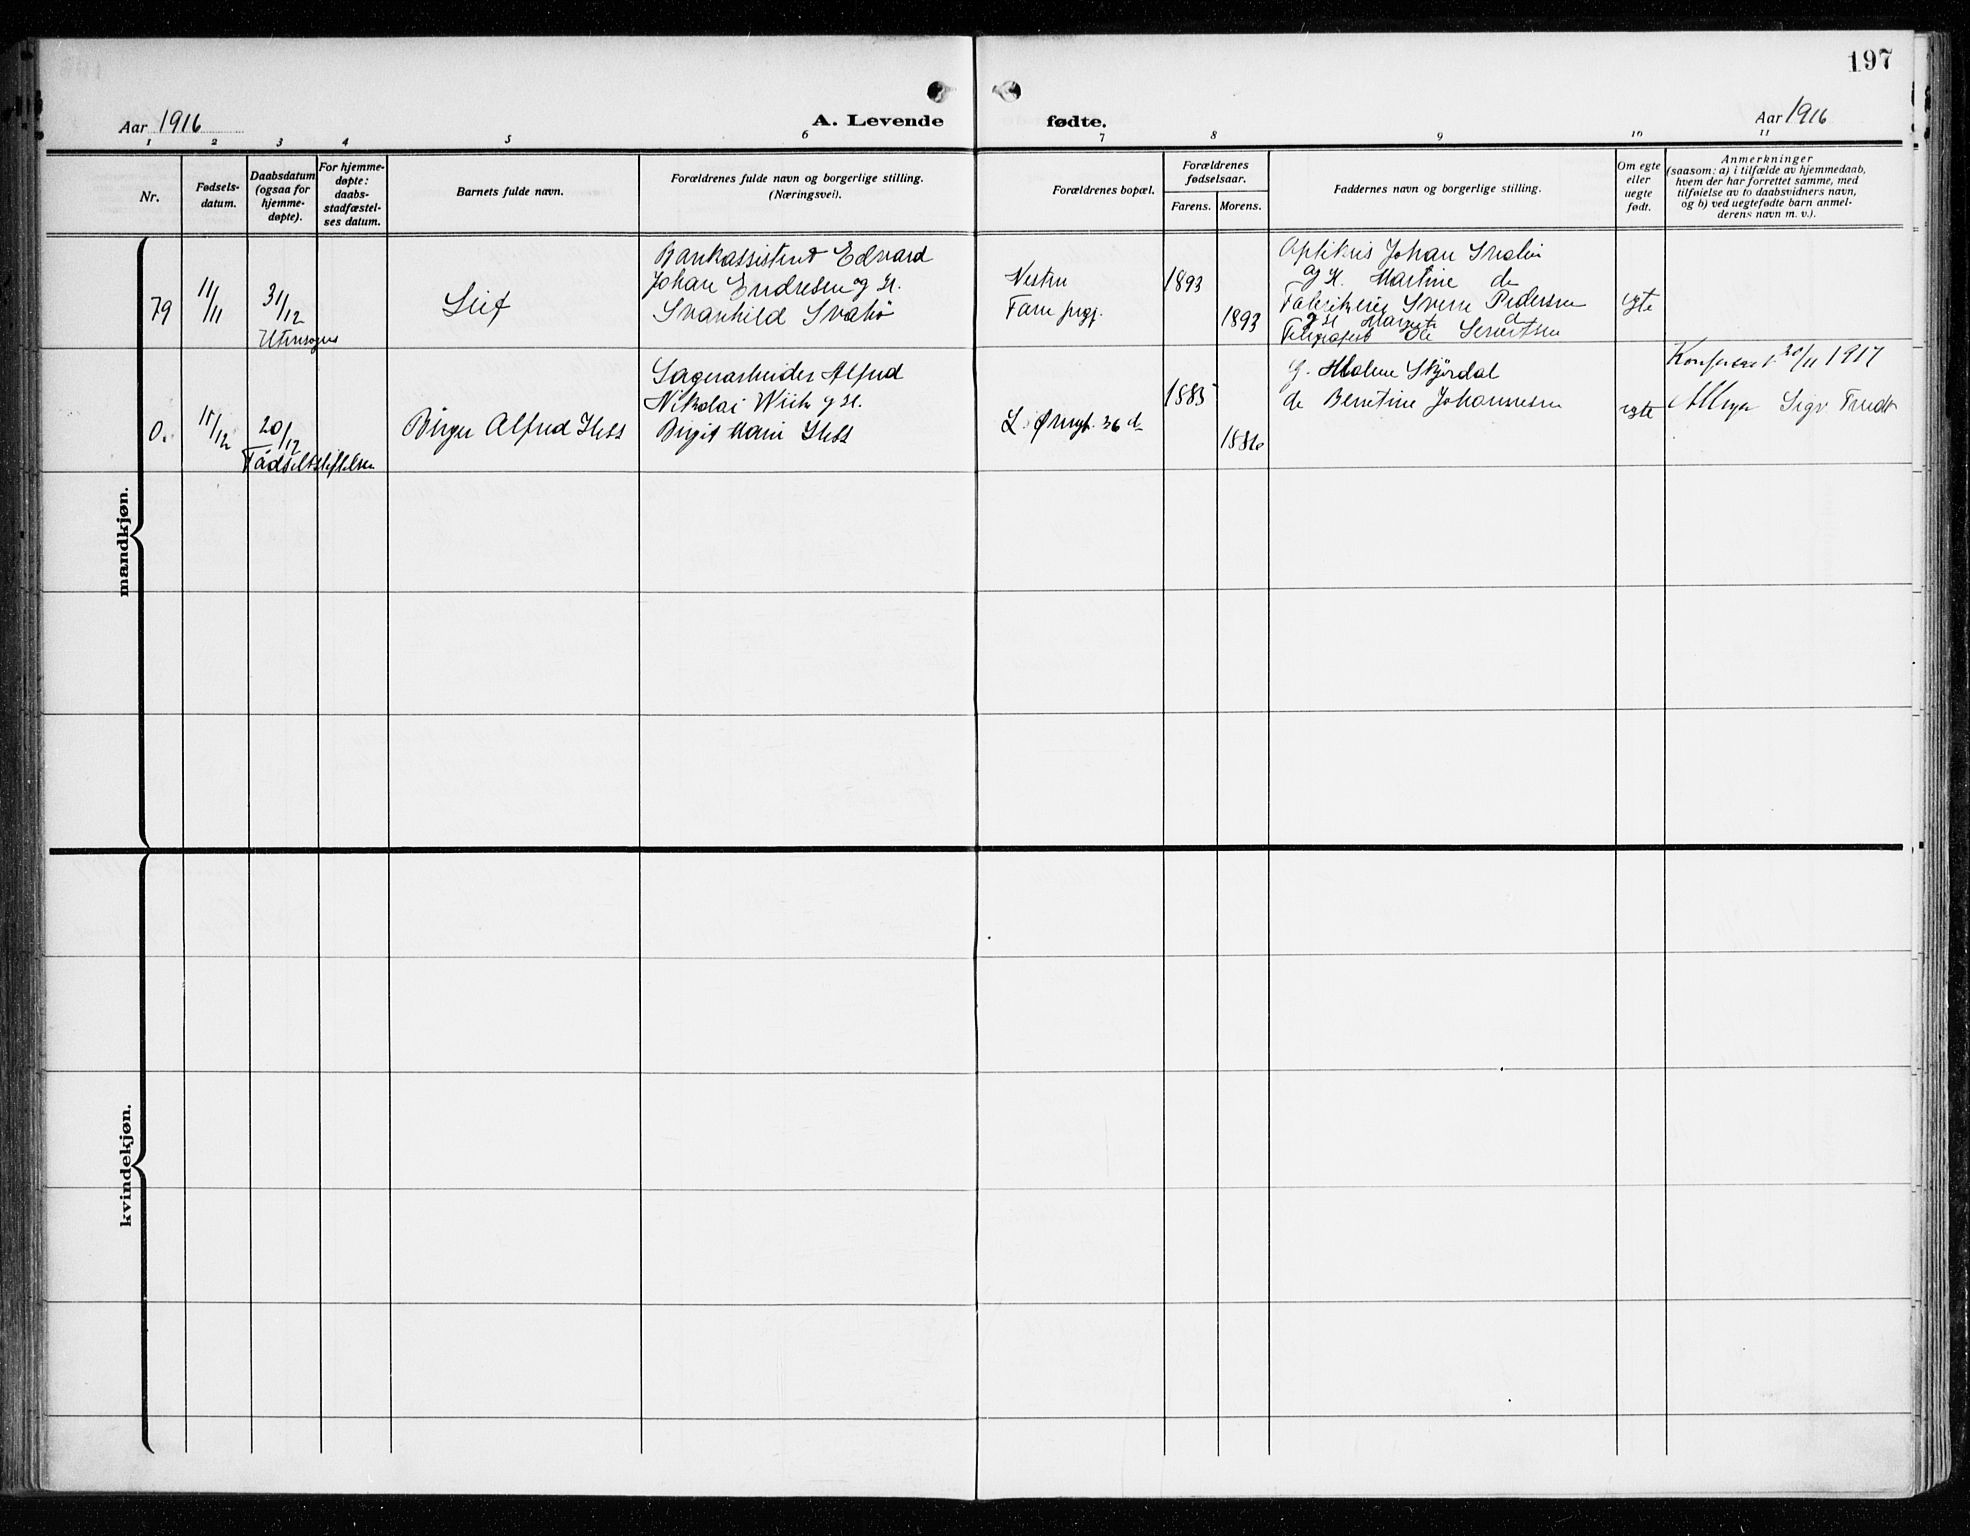 197
Aar 1916
A. Levende fødte.
Aar 1916
1 2 3 4 5 6 7 8 9 10 11
Nr.
Fødsels-
datum.
Daabsdatum
(ogsaa for
hjemme-
døpte).
For hjemme-
døpte:
daabs-
stadfæstel-
ses datum.
Barnets fulde navn.
Forældrenes fulde navn og borgerlige stilling.
(Næringsvei).
Forældrenes bopæl.
Forældrenes
fødselsaar.
Farens. Morens.
Faddernes navn og borgerlige stilling.
Om egte
eller
uegte
født.
Anmerkninger
(saasom: a) i tilfælde av hjemmedaab,
hvem der har forrettet samme, med
tilføielse av to daabsvidners navn,
og b) ved uegtefødte barn anmel-
derens navn m. v.).
mandkjøn.
79
11/11
31/12
Utensogns
Leif
Bankassistent Edvard
Johan Endresen og H.
Svanhild
Nestun
Fane prgj.
1893
1893
Johan
og H. Martine de
Sverre Pedersen
Telegrafist Ole Sivertsen
egte
0.
11/12
20/12
Fødselsstiftelsen
Birger Alfred
Lagerarbeider Alfred
Nikolai Wiik og H.
Birgit Marie
L. Øvregt. 36 d
1885
1886
G. Malene Skjørdal
de Berntine Johannesen
egte
Konfereret 20/11 1917
kvindekjøn.